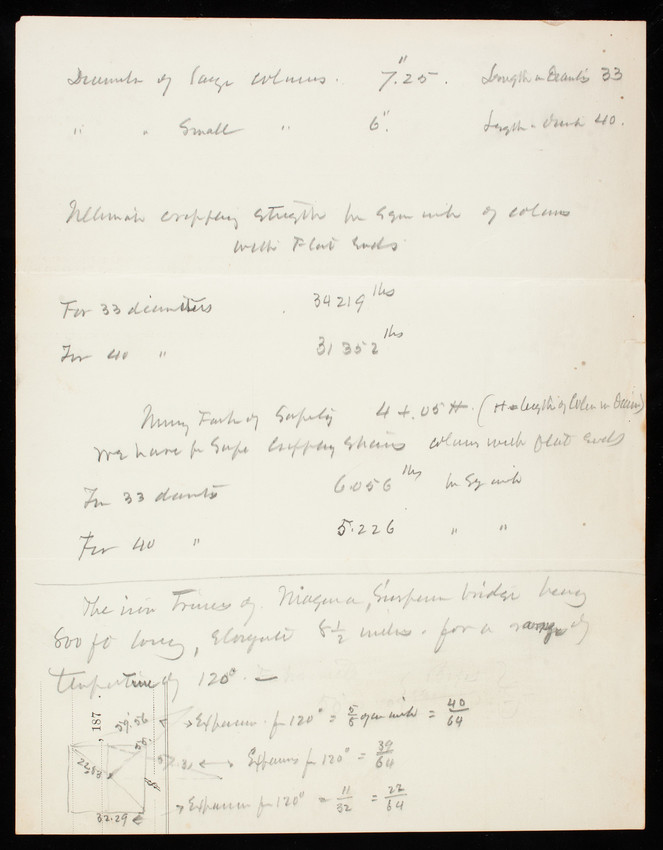 Diameter of large columns. 7".25. Length in Diameters 33
" " Small " 6". Length in Diam 40.
Ultimate crippling strength per Square inch of column
with Flat Ends
For 33 diameters 34219 lbs
For 40 " 31352 lbs
Using Factor of Safety 4 + .05 H. (H = length of Column in Diam)
We have for Safe Crippling Strains column with flat Ends
For 33 diameters 6.056 lbs per Sq inch
For 40 " 5.226 " "
The iron Trusses of Niagara, Suspension bridge being
800 ft long, Elongate 8 1/2 inches. for a range of
temperature of 120°. —
187
59.56 → Expansion for 120° = 5/8 of an inch = 40/64
58.
57.31 ← → Expansion for 120° = 39/64
22.83
→ Expansion for 120° = 11/32 = 22/64
32.29